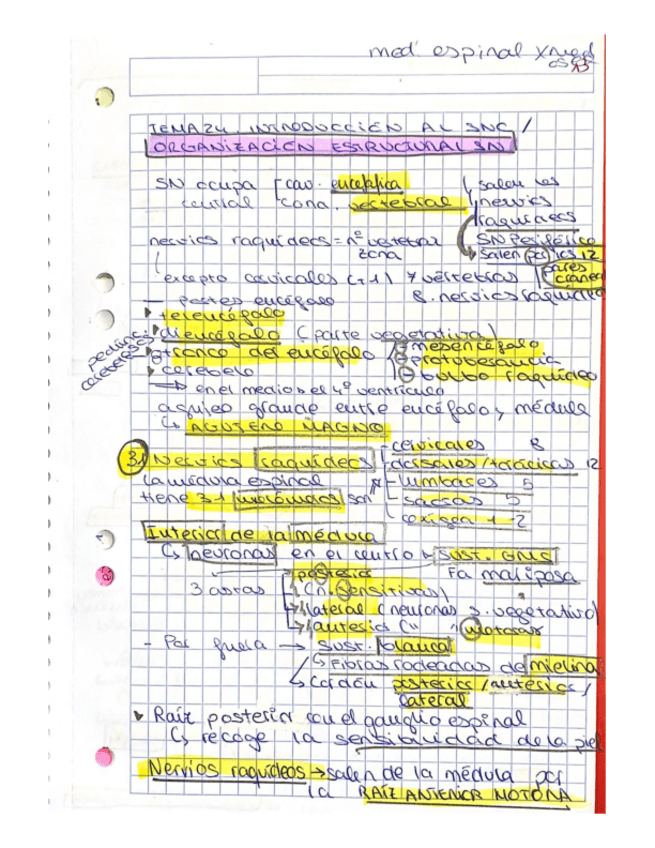 med' espinal xmed
TEMA 24. INTRODUCCIÓN AL SNC /
ORGANIZACIÓN ESTRUCTURAL SN
SN ocupa [cav. encefálica
central cona. vertebral
salen los
nervios
raquídeos
SN Periférico
Salen por los 12
pares
craneal
nervios raquídeos = nº vertebra
zona
excepto cervicales (+1) 7 vértebras
8. nervios raquídeo
— partes encéfalo
telencéfalo
diencéfalo (parte vegetativa)
tronco del encéfalo
mesencéfalo
protuberancia
bulbo raquídeo
cerebelo
pedúnc. cerebelosos
→ en el medio el 4º ventrículo
agujero grande entre encéfalo y médula
↳ AGUJERO MAGNO
31 Nervios raquídeos
cervicales 8
dorsales/torácicas 12
lumbares 5
sacras 5
coxígea 1-2
La médula espinal
tiene 31 mielómeras son
Interior de la médula
↳ neuronas en el centro → sust. GRIS
Fa mariposa
3 astas
posterior
(n. sensitivas)
lateral (neuronas s. vegetativo)
anterior (" " motoras
- Por fuera → sust. blanca
↳ Fibras rodeadas de mielina
↳ Cordón posterior/anterior/
lateral
Raíz posterior con el ganglio espinal
↳ recoge la sensibilidad de la piel
Nervios raquídeos → salen de la médula por
la RAÍZ ANTERIOR MOTORA